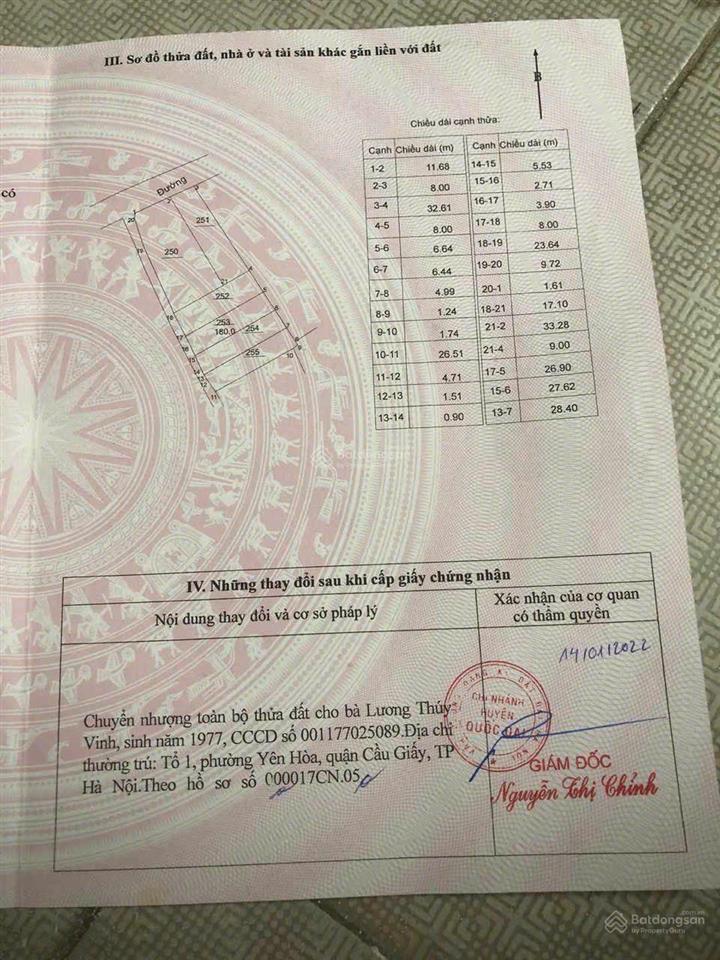 III. Sơ đồ thửa đất, nhà ở và tài sản khác gắn liền với đất
B
có
Chiều dài cạnh thửa:
Cạnh Chiều dài (m) Cạnh Chiều dài (m)
1-2 11.68 14-15 5.53
2-3 8.00 15-16 2.71
3-4 32.61 16-17 3.90
4-5 8.00 17-18 8.00
5-6 6.64 18-19 23.64
6-7 6.44 19-20 9.72
7-8 4.99 20-1 1.61
8-9 1.24 18-21 17.10
9-10 1.74 21-2 33.28
10-11 26.51 21-4 9.00
11-12 4.71 17-5 26.90
12-13 1.51 15-6 27.62
13-14 0.90 13-7 28.40
Đường
20 2 3
251
19 250
21 4
252 5
18 253 6
180.0 254
17 7
16 255 8
15 9
14 10
13
12
11
Batdongsan
by PropertyGuru
IV. Những thay đổi sau khi cấp giấy chứng nhận
Nội dung thay đổi và cơ sở pháp lý
Xác nhận của cơ quan
có thẩm quyền
14/01/2022
Chuyển nhượng toàn bộ thửa đất cho bà Lương Thúy
Vinh, sinh năm 1977, CCCD số 001177025089.Địa chỉ
thường trú: Tổ 1, phường Yên Hòa, quận Cầu Giấy, TP
Hà Nội.Theo hồ sơ số 000017CN.05
CHI NHÁNH
HUYỆN
QUỐC OAI
GIÁM ĐỐC
Nguyễn Thị Chỉnh
Batdongsan.com.vn
by PropertyGuru